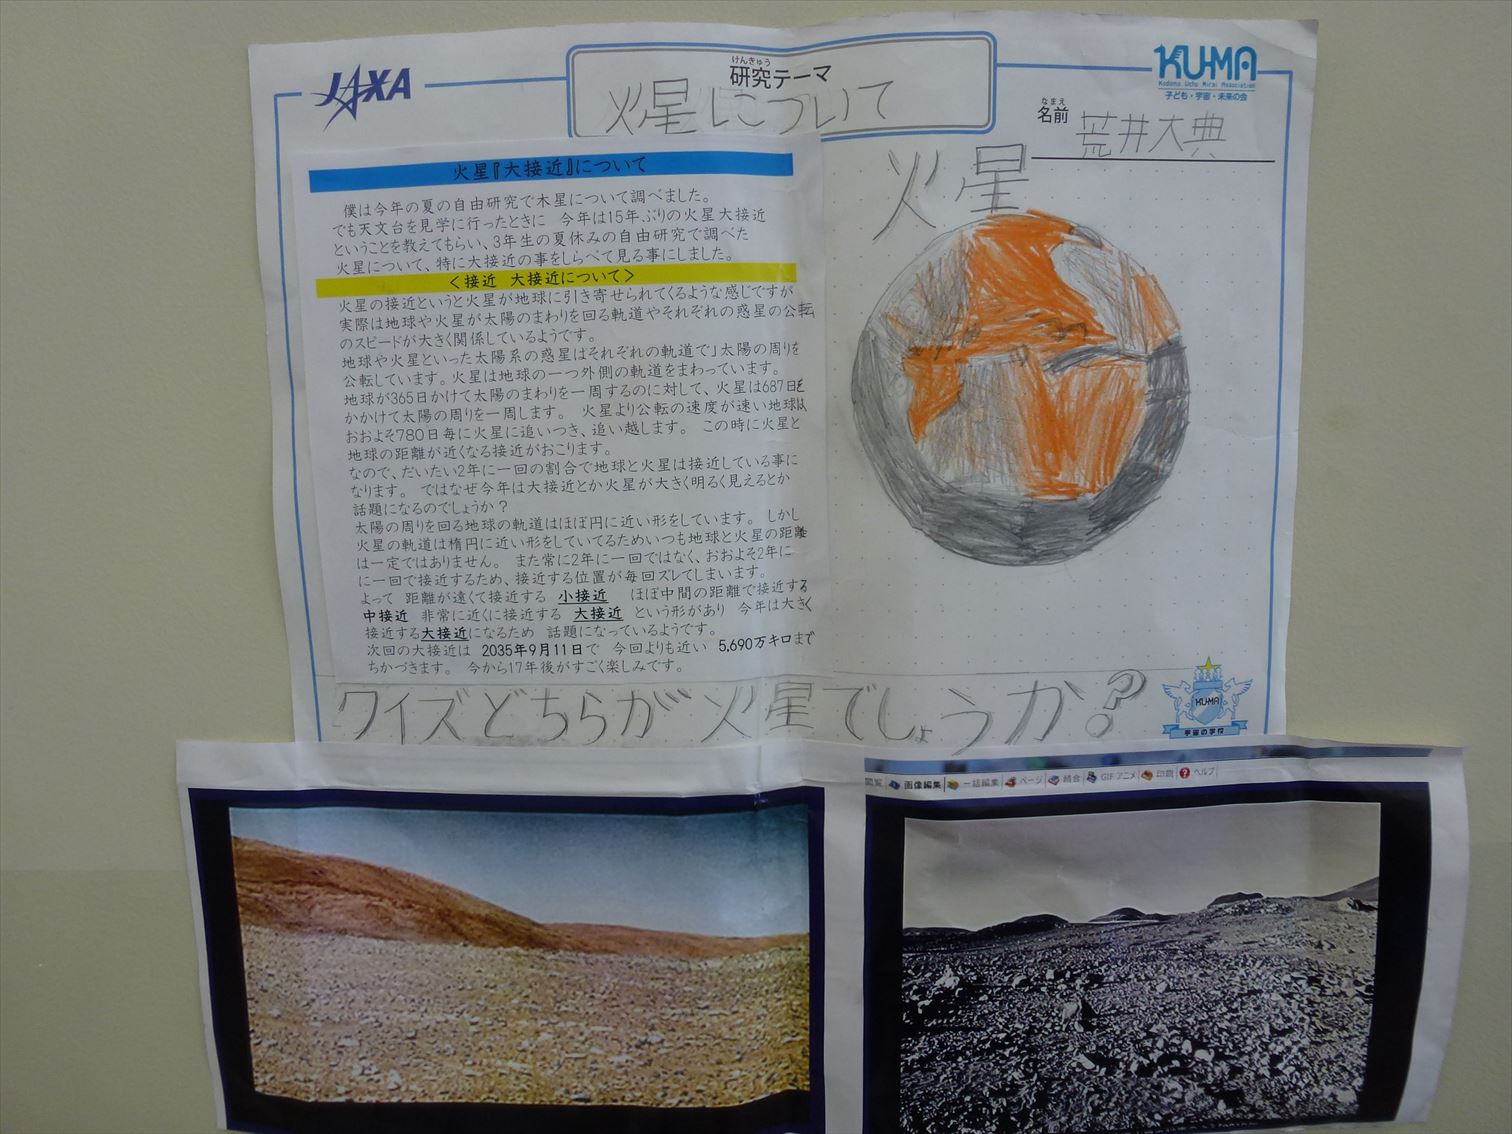 JAXA
けんきゅう
研究テーマ
火星について
KU-MA
Kodomo Uchu Mirai Association
子ども・宇宙・未来の会
なまえ
名前
荒井大典
火星『大接近』について
僕は今年の夏の自由研究で木星について調べました。
でも天文台を見学に行ったときに 今年は15年ぶりの火星大接近
ということを教えてもらい、3年生の夏休みの自由研究で調べた
火星について、特に大接近の事をしらべて見る事にしました。
＜接近 大接近について＞
火星の接近というと火星が地球に引き寄せられてくるような感じですが
実際は地球や火星が太陽のまわりを回る軌道やそれぞれの惑星の公転
のスピードが大きく関係しているようです。
地球や火星といった太陽系の惑星はそれぞれの軌道で」太陽の周りを
公転しています。火星は地球の一つ外側の軌道をまわっています。
地球が365日かけて太陽のまわりを一周するのに対して、火星は687日を
かかけて太陽の周りを一周します。 火星より公転の速度が速い地球は
おおよそ780日毎に火星に追いつき、追い越します。 この時に火星と
地球の距離が近くなる接近がおこります。
なので、だいたい2年に一回の割合で地球と火星は接近している事に
なります。 ではなぜ今年は大接近とか火星が大きく明るく見えるとか
話題になるのでしょうか？
太陽の周りを回る地球の軌道はほぼ円に近い形をしています。 しかし
火星の軌道は楕円に近い形をしていてるためいつも地球と火星の距離
は一定ではありません。 また常に2年に一回ではなく、おおよそ2年に
に一回で接近するため、接近する位置が毎回ズレてしまいます。
よって 距離が遠くて接近する 小接近 ほぼ中間の距離で接近する
中接近 非常に近くに接近する 大接近 という形があり 今年は大きく
接近する大接近になるため 話題になっているようです。
次回の大接近は 2035年9月11日で 今回よりも近い 5,690万キロまで
ちかづきます。 今から17年後がすごく楽しみです。
火星
クイズどちらが火星でしょうか?
KU-MA
宇宙の学校
閲覧 画像編集 一括編集 ページ 結合 GIFアニメ 印刷 ヘルプ